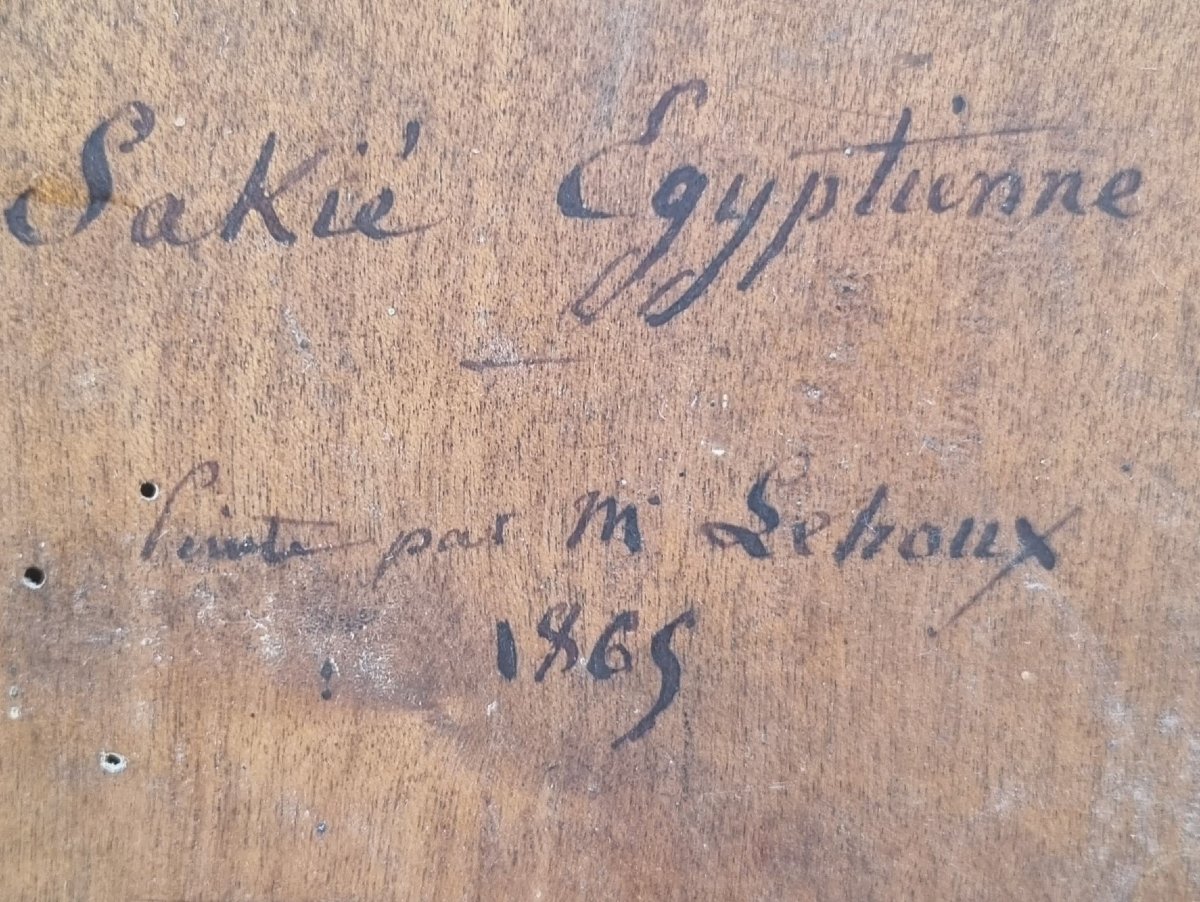 Sakié Egyptienne
Peinte par Mr Lehoux
1865